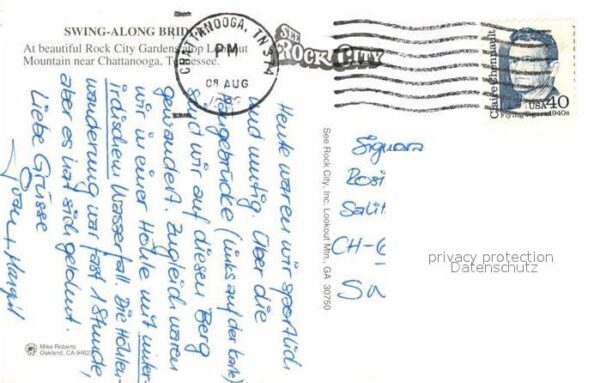 SWING-ALONG BRIDGE
At beautiful Rock City Gardens atop Lookout
Mountain near Chattanooga, Tennessee.
CHATTANOOGA, TN 374
PM
08 AUG
SEE
ROCK CITY
Claire Chennault
USA 40
Flying Tigers, 1940s
Heute waren wir sportlich
und mutig. Über die
Hängebrücke (links auf der Karte)
sind wir auf diesen Berg
gewandert. Zugleich waren
wir in einer Höhle mit unter-
irdischem Wasserfall. Die Höhlen-
wanderung war fast 1 Stunde,
aber es hat sich gelohnt.
Liebe Grüsse
See Rock City, Inc. Lookout Mtn., GA 30750
Signora
Rosi
Salit
CH-6
Sa
privacy protection
Datenschutz
Mike Roberts
Oakland, CA 94623